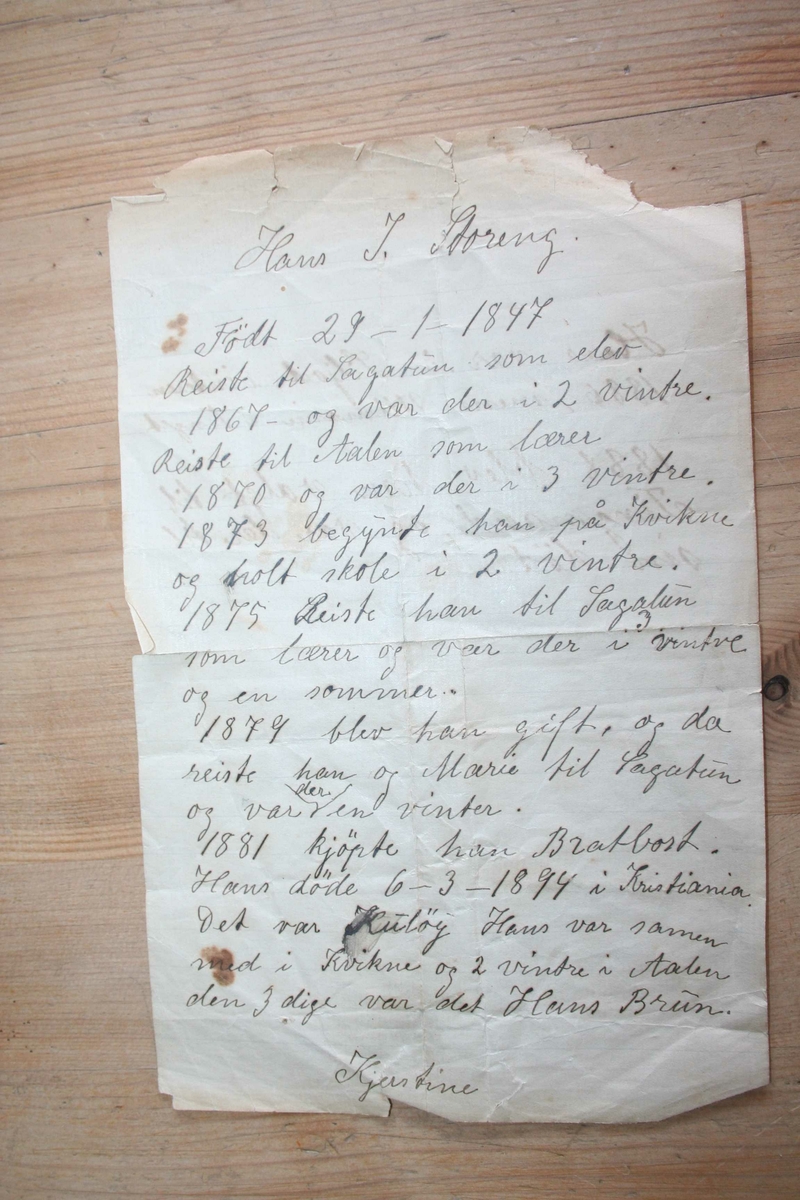 Hans J. Storeng.
Født 29 - 1 - 1847
Reiste til Sagatun som elev
1867- og var der i 2 vintre.
Reiste til Aalen som lærer
1870 og var der i 3 vintre.
1873 begynte han på Kvikne
og holt skole i 2 vintre.
1875 Reiste han til Sagatun
som lærer og var der i 3 vintre
og en sommer.
1879 blev han gift, og da
reiste han og Marie til Sagatun
og var der en vinter.
1881 kjöpte han Bratbost.
Hans döde 6-3-1894 i Kristiania.
Det var Kulöy Hans var samen
med i Kvikne og 2 vintre i Aalen
den 3 dige var det Hans Brun.
Kjerstine